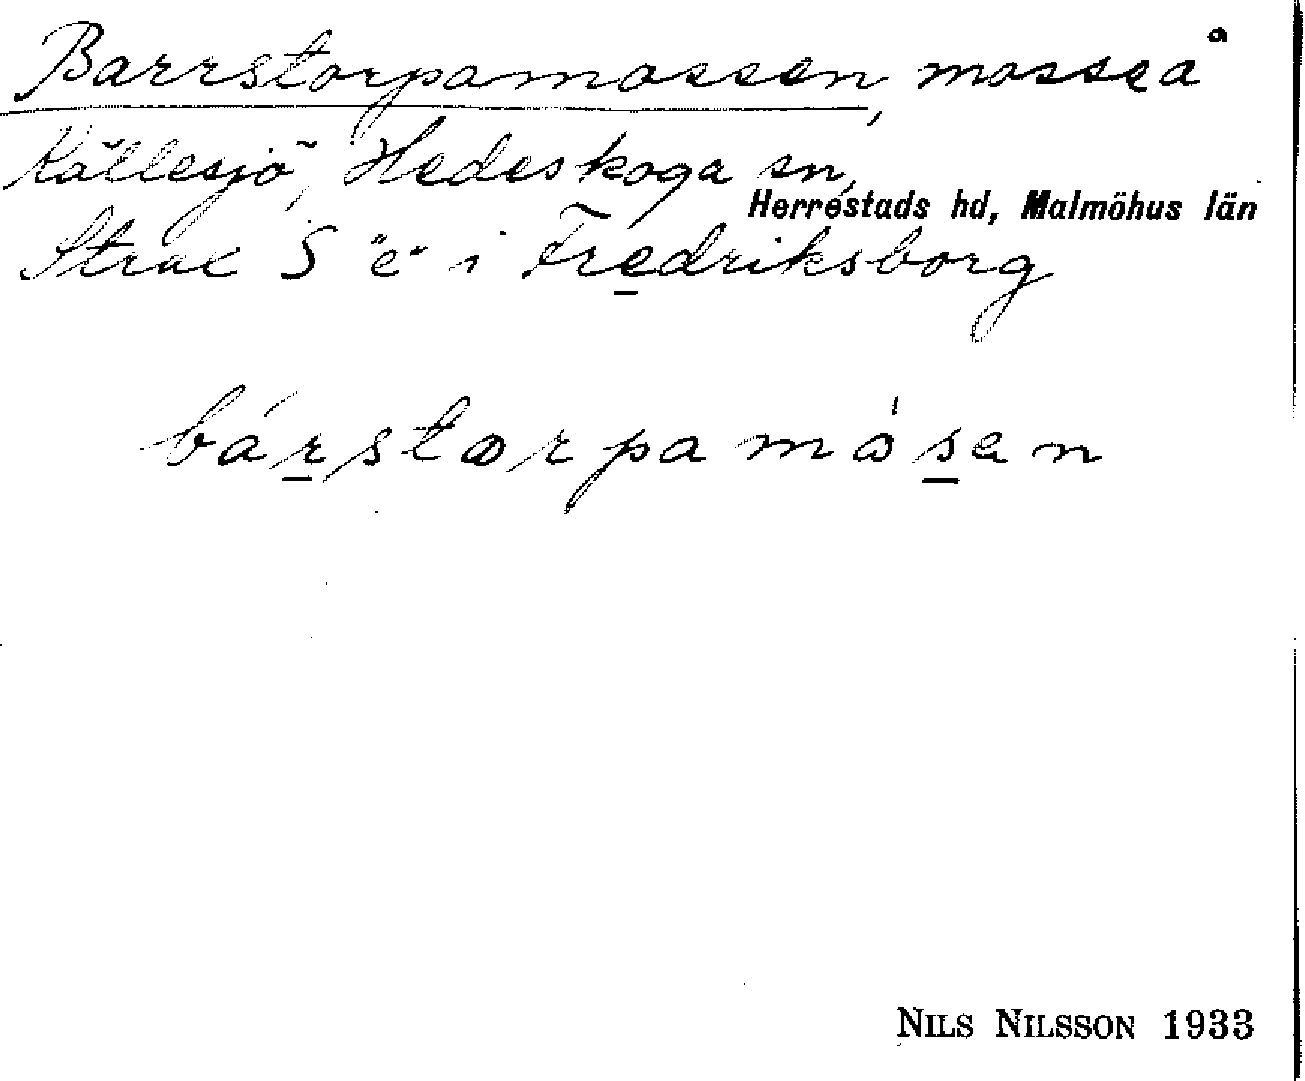 Barrstorpamossen, mosse å
Källesjö, Hedeskoga sn,
Herrestads hd, Malmöhus län
Strax S "e" i Fredriksborg
bárstorpamósen
NILS NILSSON 1933